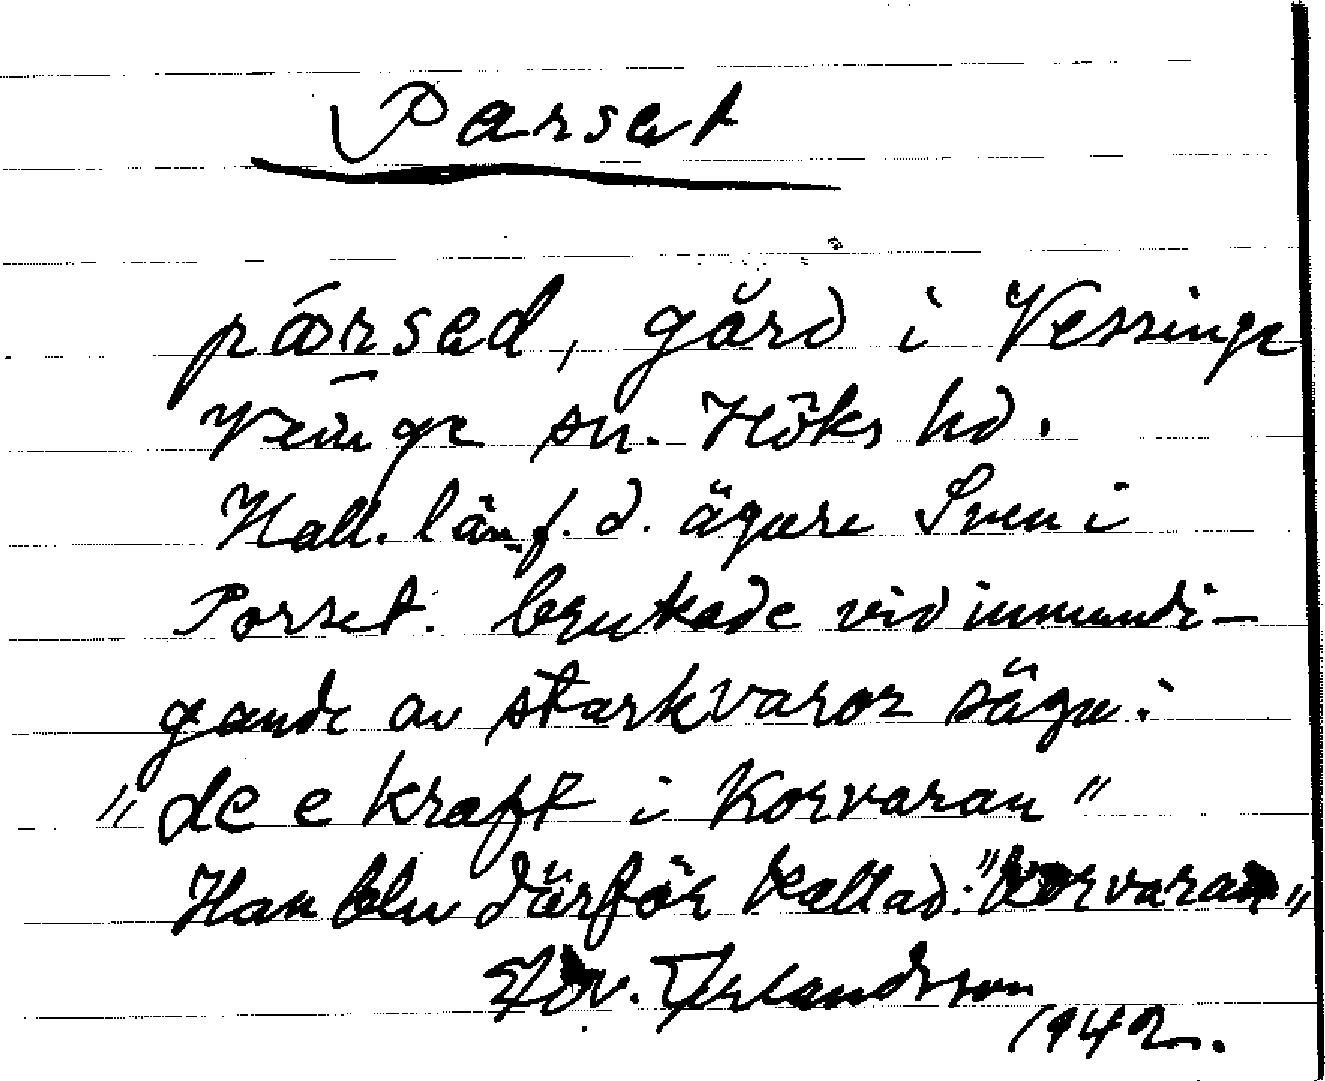 Parset
pársed, gård i Vessinge
Veinge sn. Höks hd.
Hall. län f. d. ägare Sven i
Porset. brukade vid inmundi-
gande av starkvaror säga:
"de e kraft i Korvaran"
Han blev därför kallad: "Korvaran"
Edv. Erlandsson
1942.